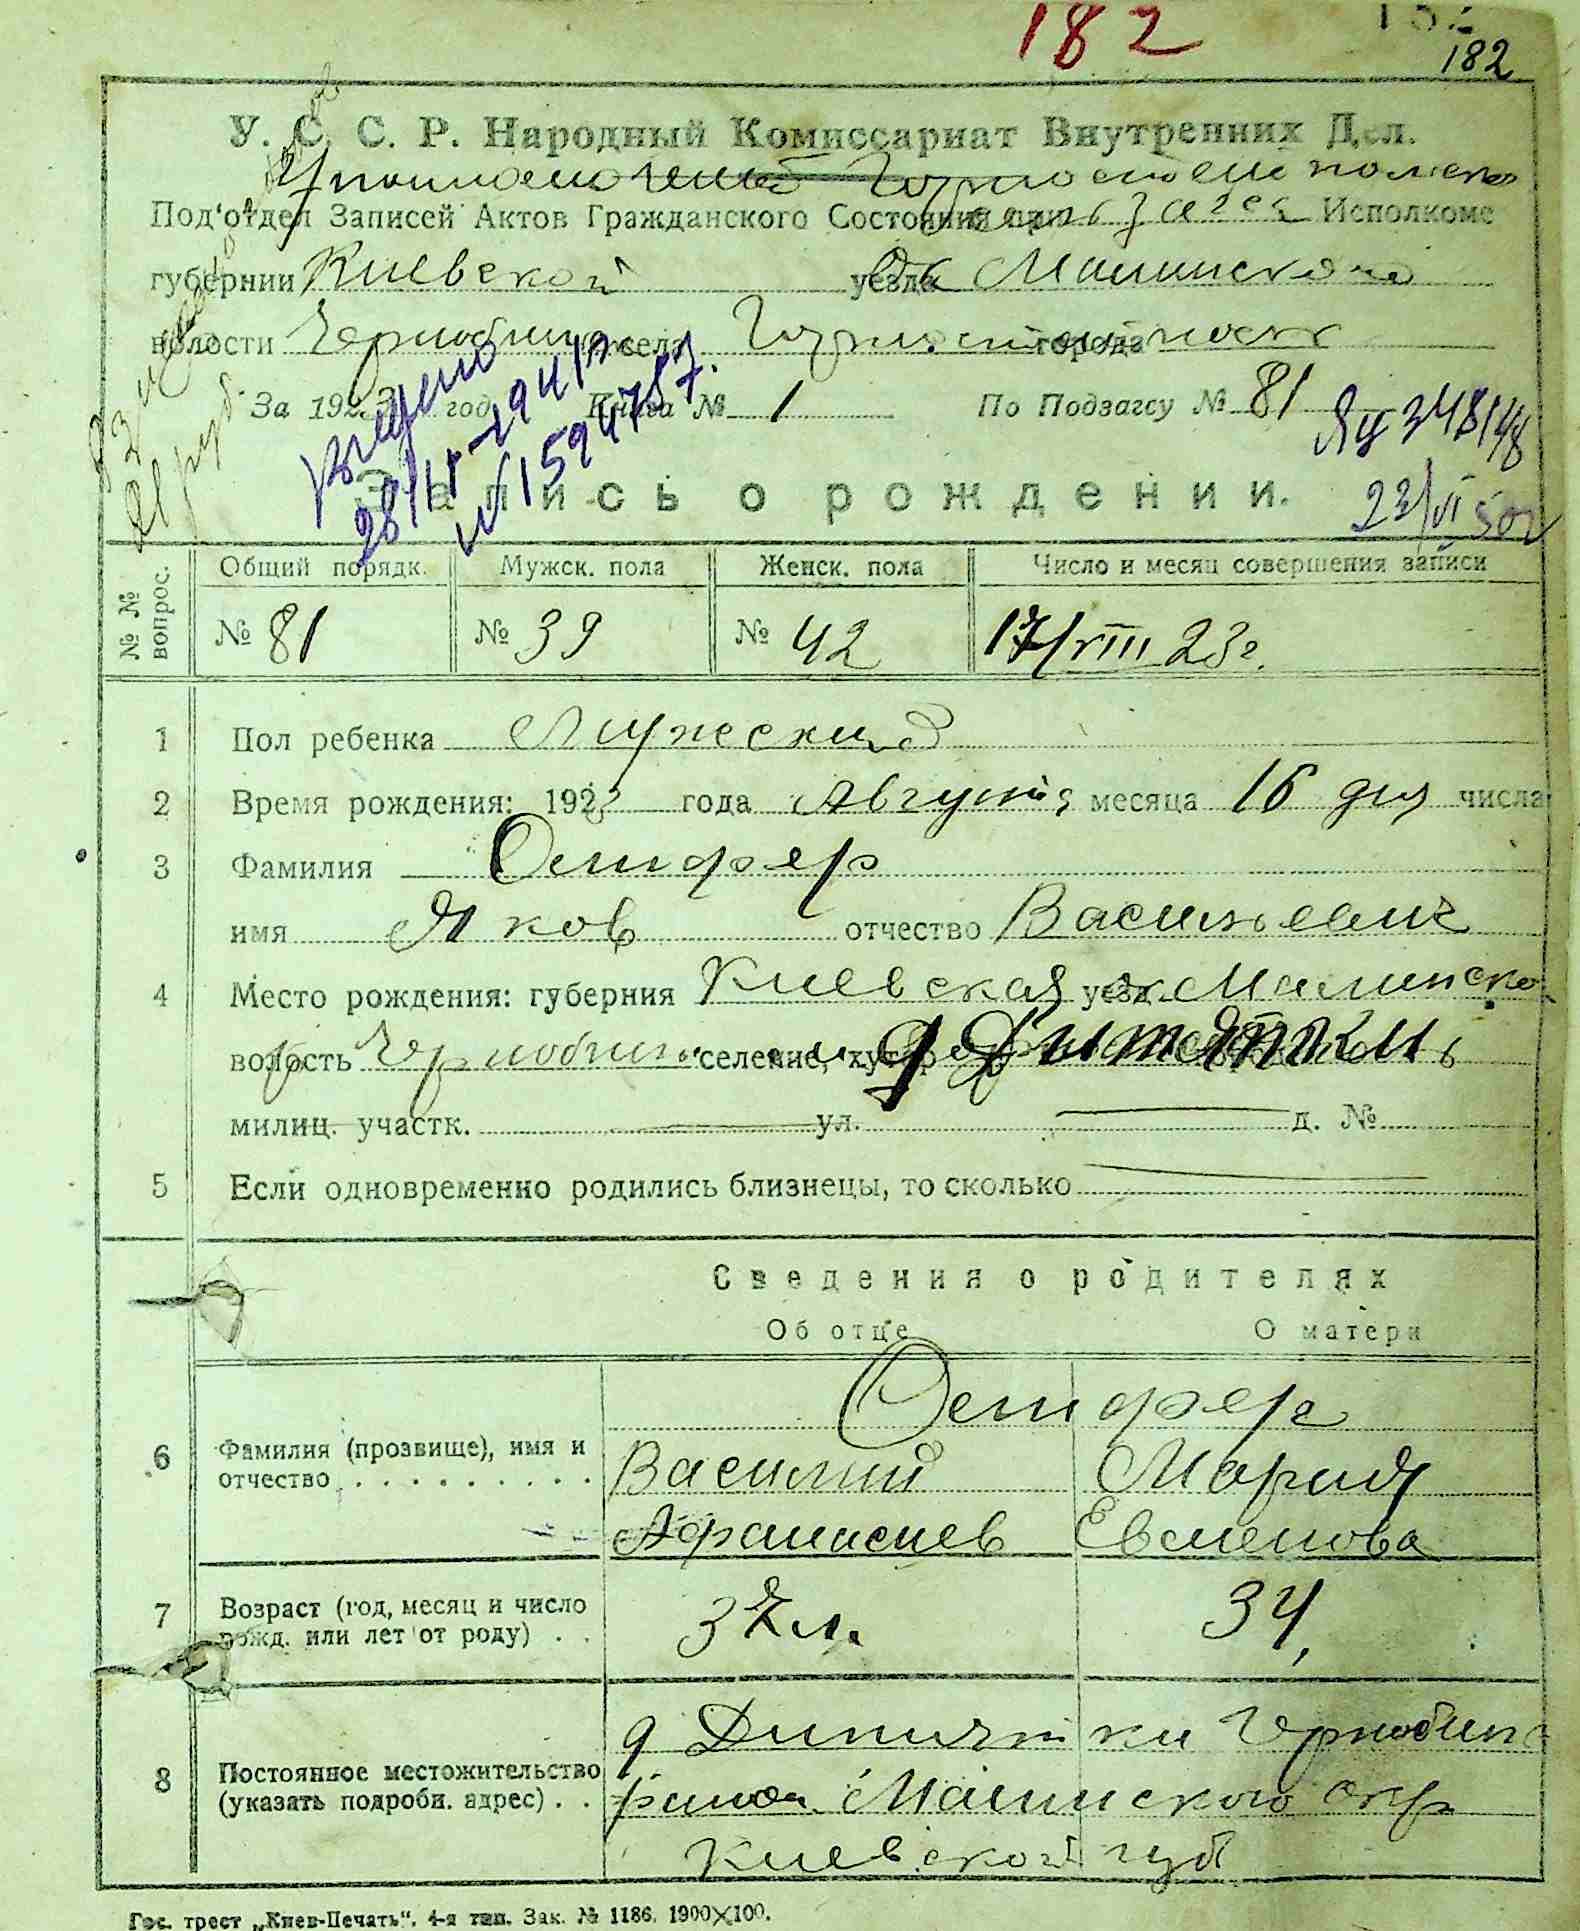 182
182
У. С. С. Р. Народный Комиссариат Внутренних Дел.
Под'отдел Записей Актов Гражданского Состояния при загса Исполкоме
губернии Киевской уезда Ок Малинского
волости села города Горностайполь
За 1923 год Книга № 1 По Подзагсу № 81
выдано
Яц 348148
23/VI 50г
Запись о рождении.
№ № вопрос.
Общий порядк. Мужск. пола Женск. пола Число и месяц совершения записи
№ 81 № 39 № 42 17/VIII 23г.
1 Пол ребенка Мужеский
2 Время рождения: 1923 года Августа месяца 16 дня числа
3 Фамилия
имя Яков отчество Васильевич
4 Место рождения: губерния Киевская уезд ок Малинско
волость Чернобыль селение, хутор д Дитятки
милиц. участк. ул. д. №
5 Если одновременно родились близнецы, то сколько
Сведения о родителях
Об отце О матери
6 Фамилия (прозвище), имя и отчество
Василий Мария
Афанасиев Евменова
7 Возраст (год, месяц и число рожд. или лет от роду) 37 л. 34
8 Постоянное местожительство (указать подробн. адрес)
д Дитятки Чернобыл
район Малинского окр
Киевской губ
Гос. трест „Киев-Печать“. 4-я тип. Зак. № 1186. 1900×100.